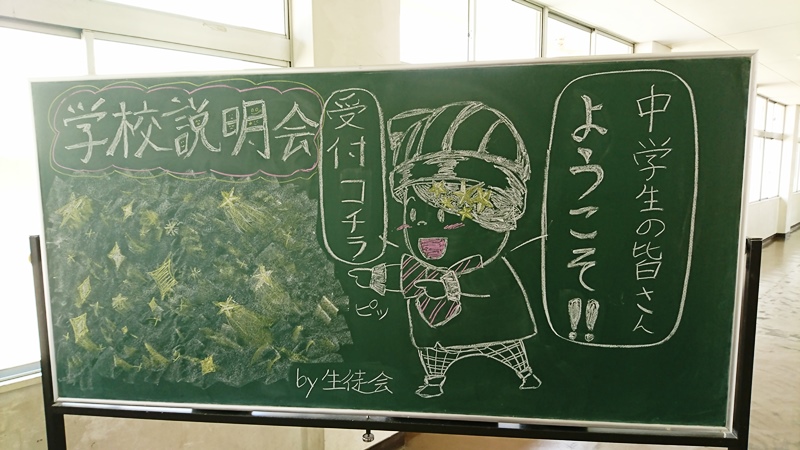 学校説明会
受付コチラ
ピッ
中学生の皆さん
ようこそ!!
by 生徒会